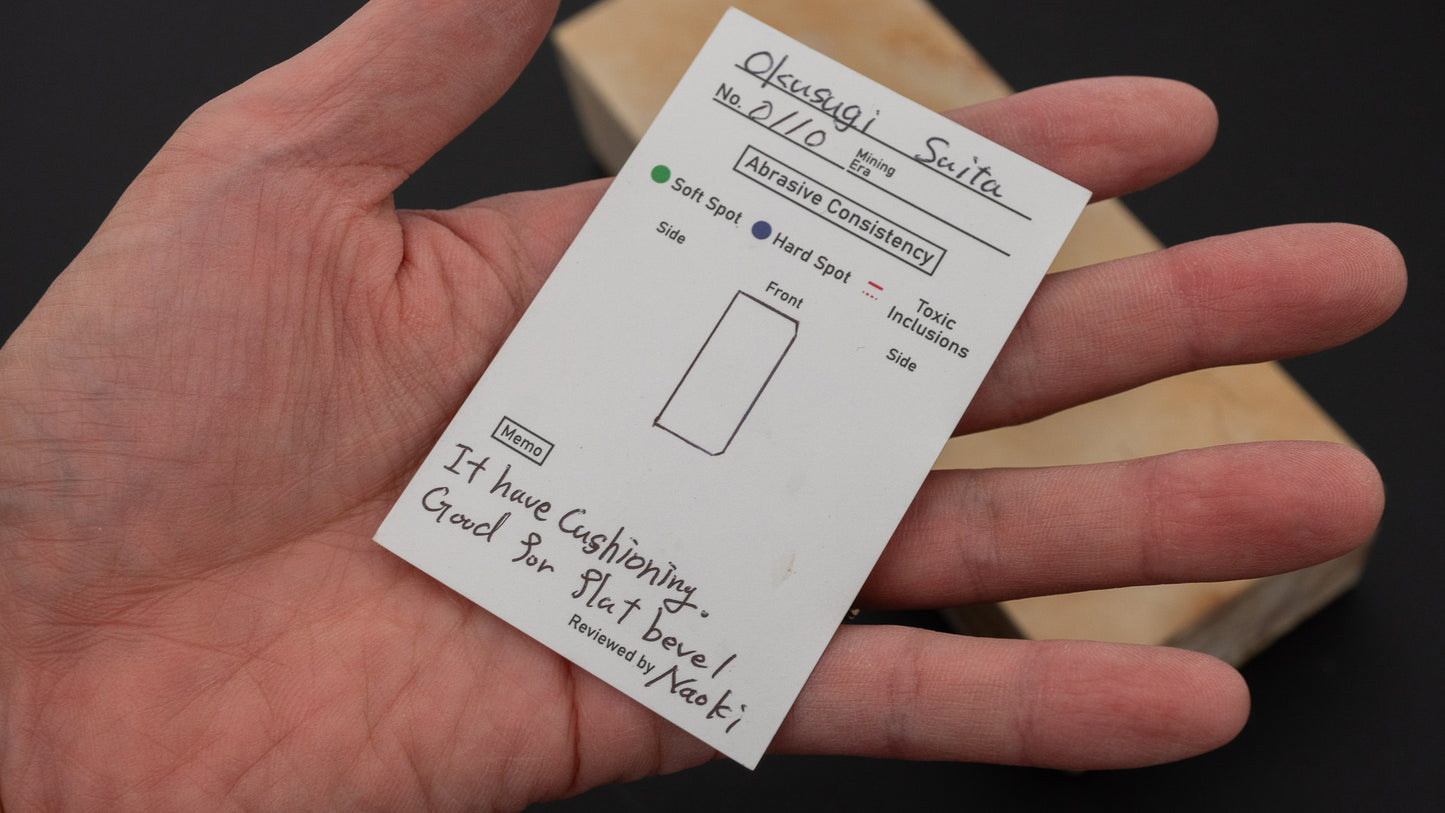 Okusugi Suita
No. 0110 Mining Era
Abrasive Consistency
Soft Spot Hard Spot Toxic Inclusions
Side Front Side
Memo
It have Cushioning.
Good for flat bevel
Reviewed by Naoki